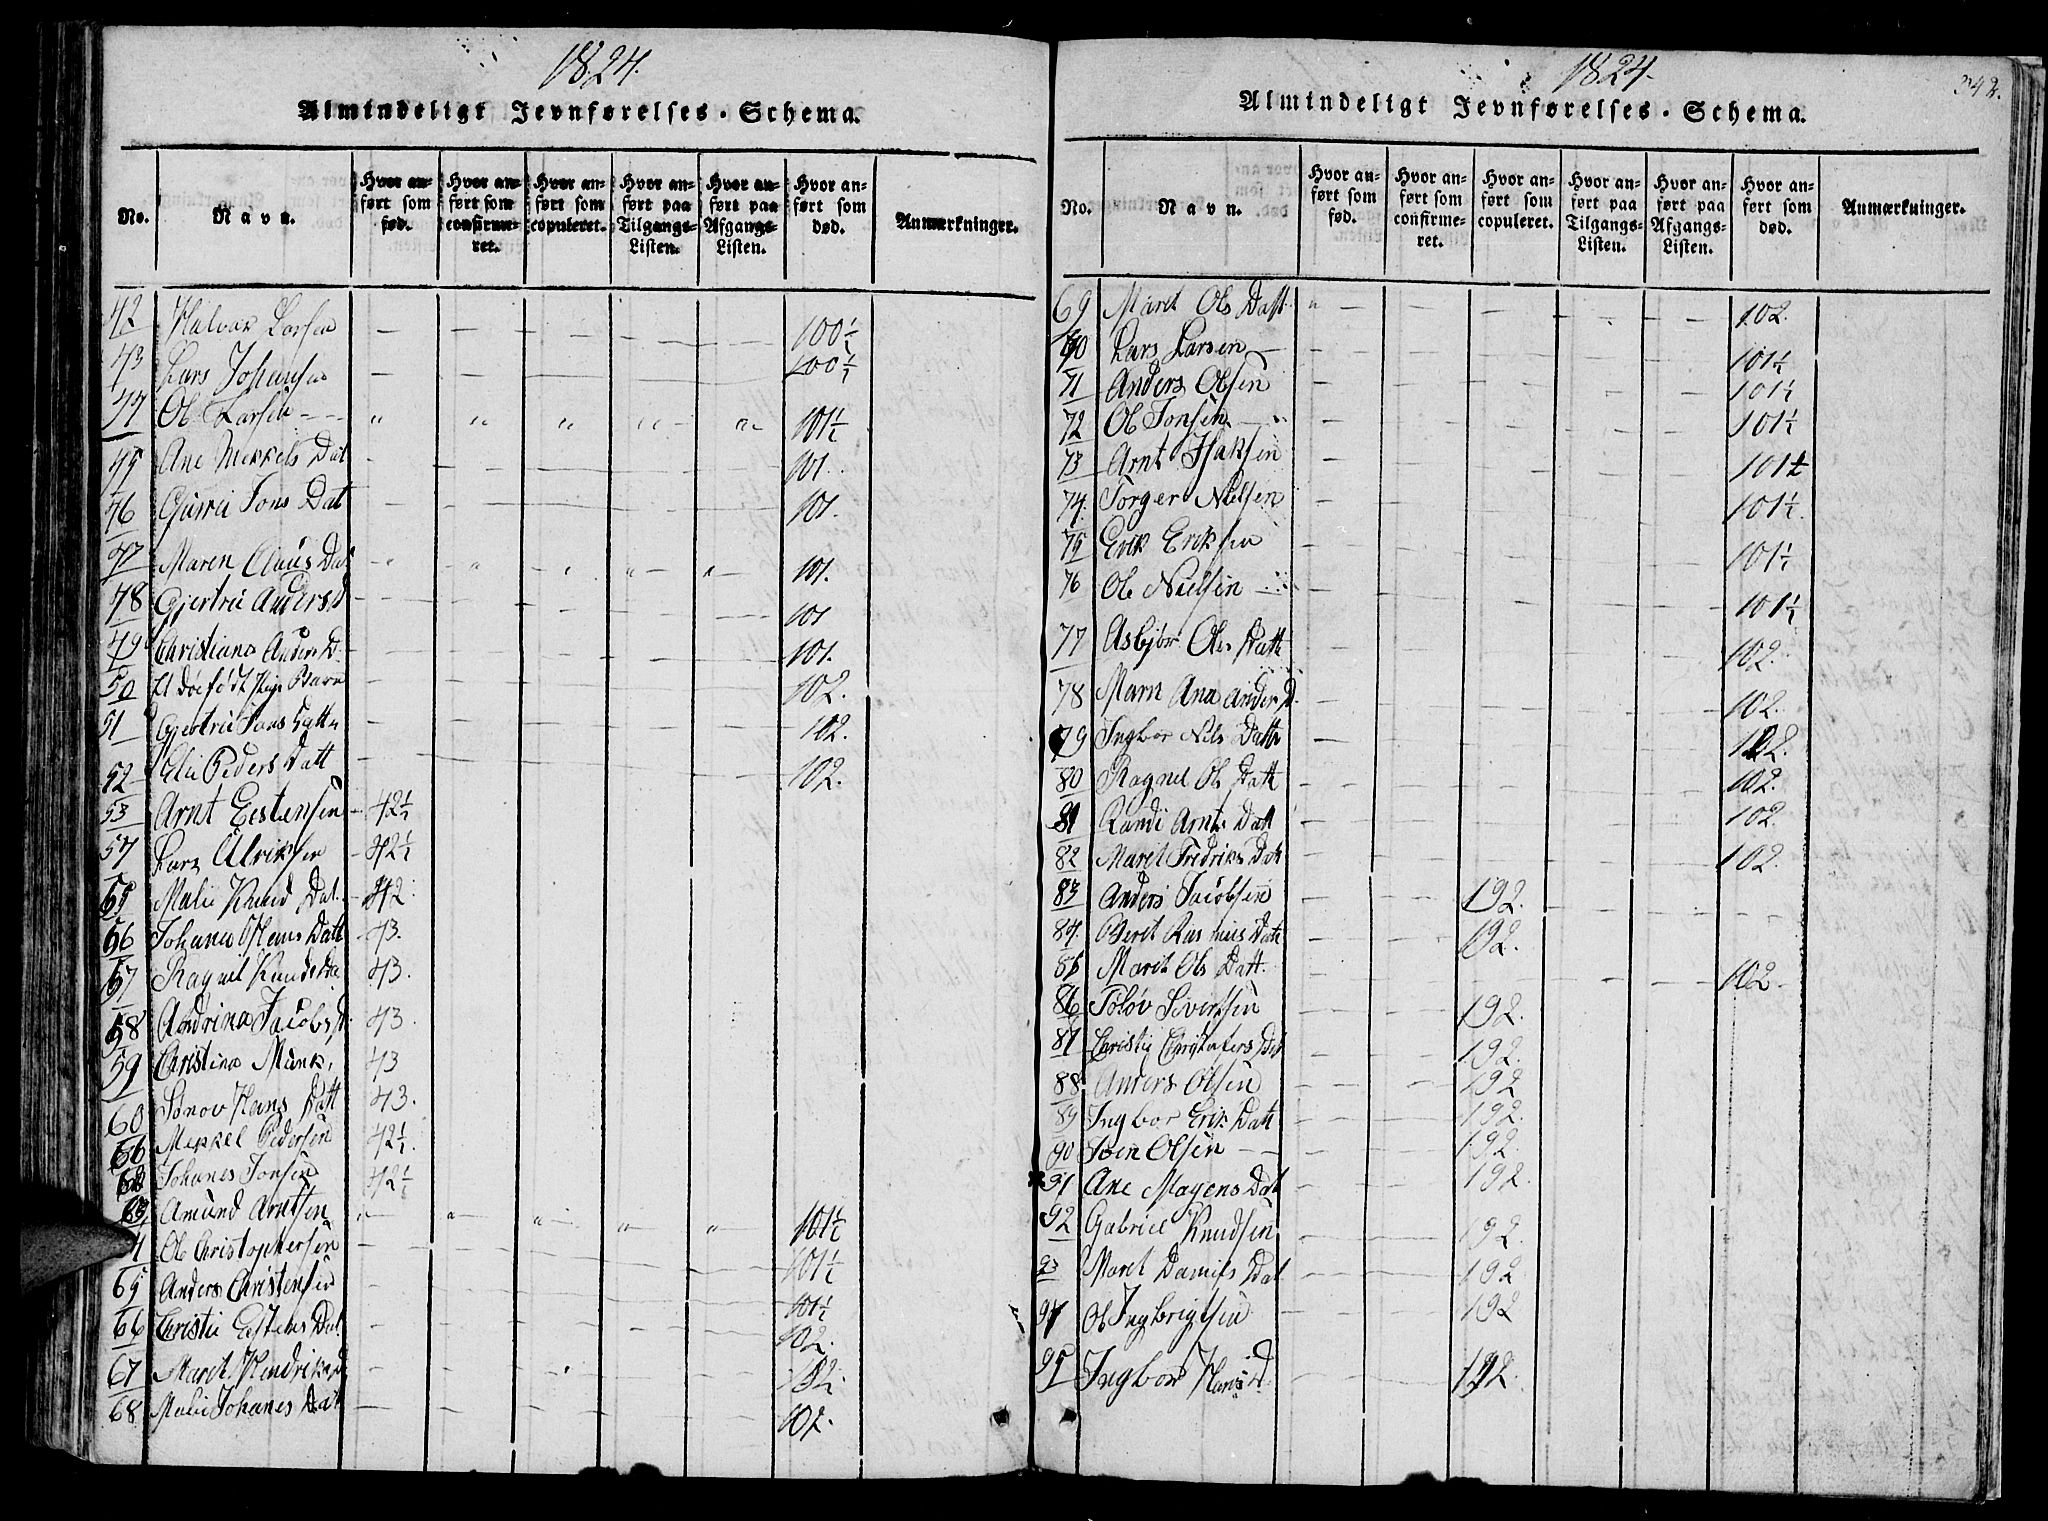 1824.
Almindeligt Jevnførelses-Schema.
No. Navn. Hvor anført som fød. Hvor anført som confirmeret. Hvor anført som copuleret. Hvor anført paa Tilgangs-Listen. Hvor anført paa Afgangs-Listen. Hvor anført som død. Anmærkninger.
42 Halvar Larsen 100½
43 Lars Johansen 100½
44 Ole Larsen 101½
45 Ane Mekkels Dat 101.
46 Jons Dat 101.
47 Maren Claus Dat 101.
48 Gjertru Anders D 101
49 Christiane Anders D. 101.
50 Et døefødt Pige Barn 102.
51 Gjertru Jons Datt 102.
52 Eli Peders Datt 102.
53 Arnt Eestensen 42½
54 Lars Ulriksen 42½
55 Mali Knud Dat. 42
56 Johana Hans Datt 43.
57 Ragnil Knuds Da 43.
58 Andrina Jacobs D. 43.
59 Christina Munk, 43
60 Sønov Hans Datt 43.
Mekkel Pedersen 42½.
62 Johanes Jonsen 42½
63 Amund Arntsen 101½
4 Ole Christophersen 101½
65 Anders Christensen 101½
66 Christi Estens Dat. 102.
67 Marit Hendriks D 102.
68 Mali Johanes Dat 102.
1824.
342.
Almindeligt Jevnførelses-Schema.
No. Navn. Hvor anført som fød. Hvor anført som confirmeret. Hvor anført som copuleret. Hvor anført paa Tilgangs-Listen. Hvor anført paa Afgangs-Listen. Hvor anført som død. Anmærkninger.
69 Marit Ols Datt. 102.
70 Lars Larsen 101½
71 Anders Olsen 101½
72 Ole Jonsen 101½
73 Arnt Isaksen 101½
74. Torger Nielsen 101½.
75 Erik Eriksen 101½
76 Ole Nielsen 101½
77 Asbjør Ols Datt 102.
78 Marn Ana Anders D. 102.
79 Ingbor Nils Datt 102.
80 Ragnel Ols Datt 102.
81 Randi Arnts Datt 102.
82 Marit Fredriks Dat 102.
83 Anders Jacobsen 192.
84. Berit Rasmus Datt 192.
85 Marit Ols Datt. 102.
86 Siversen 192.
87 Christi Christofers Dat 192.
88 Anders Olsen 192
89 Ingbor Erik Datt 192.
90 Iven Olsen 192.
91 Ane Magens Dat 192.
92 Gabriel Knudsen 192.
93 Maret Daniels Dat 192.
94 Ole Ingbrigtsen 192
95 Ingbor Hans D. 192.